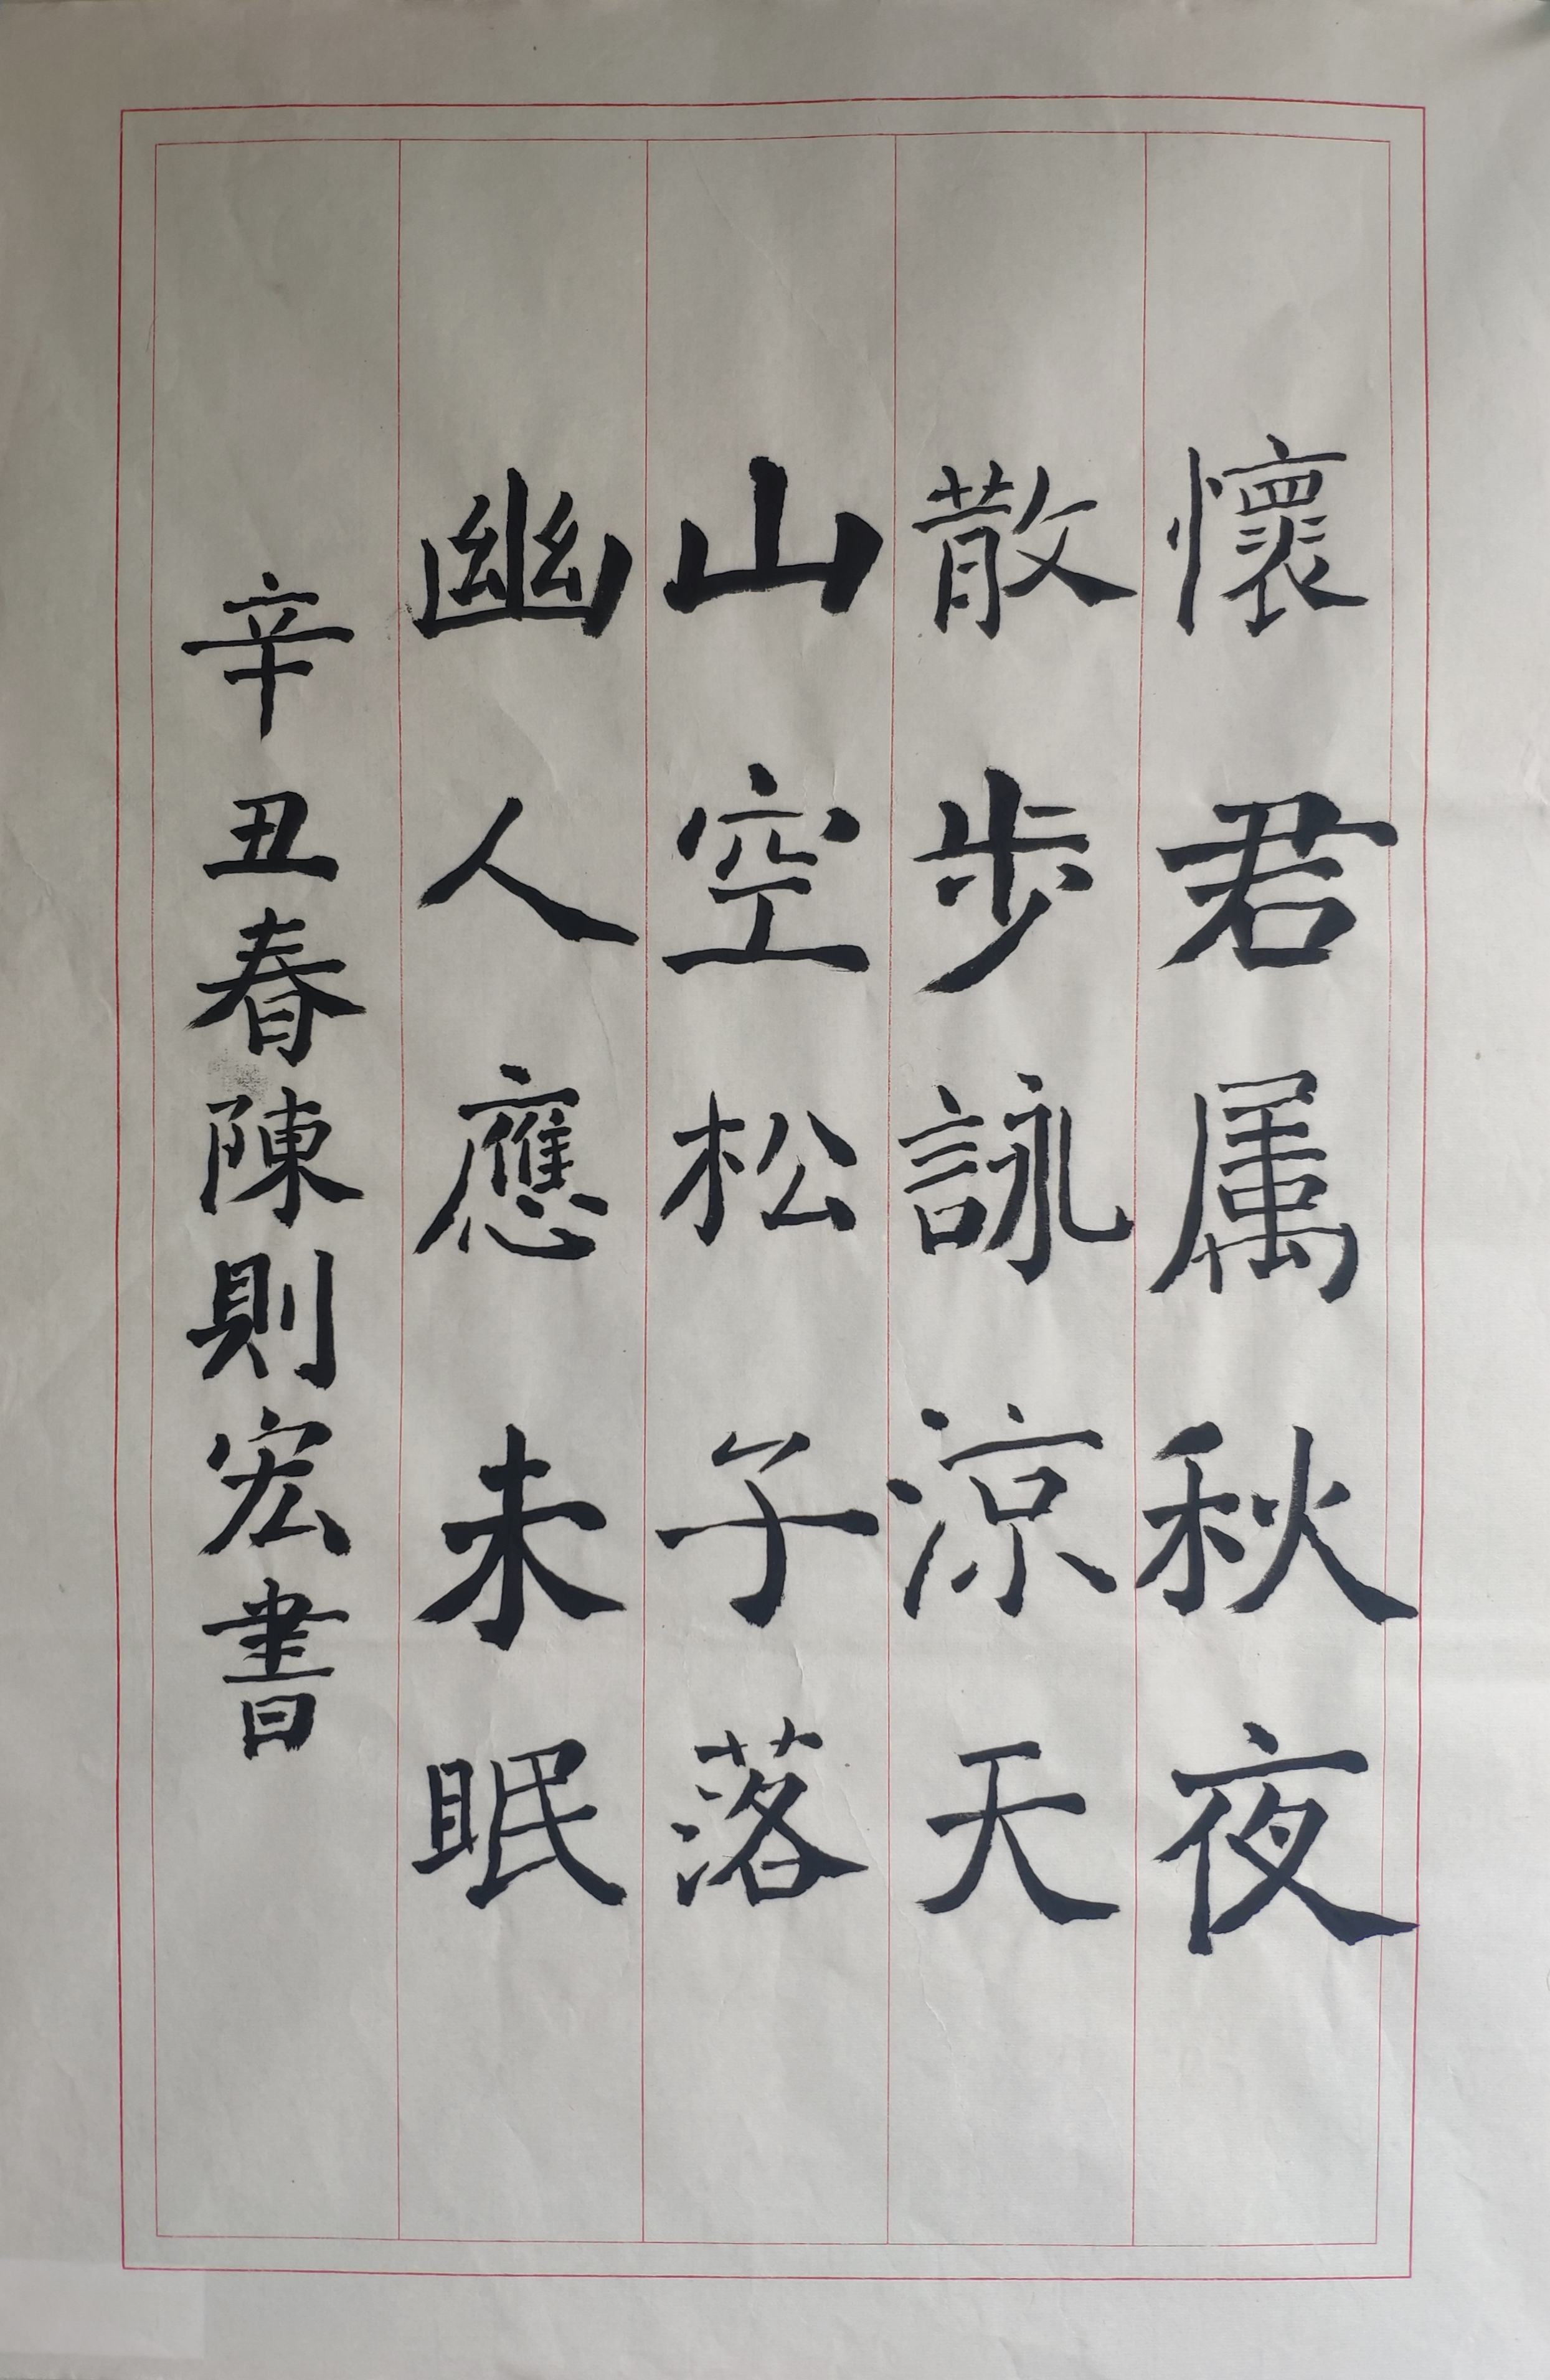 懷君属秋夜
散步詠涼天
山空松子落
幽人應未眠
辛丑春陳則宏書